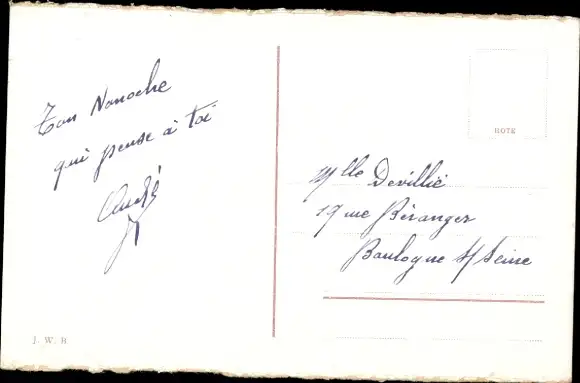 Ton Nanoche
qui pense à toi
André
HOTE
Mlle Devillié
17 rue Béranger
Boulogne s/ Seine
J. W. B.